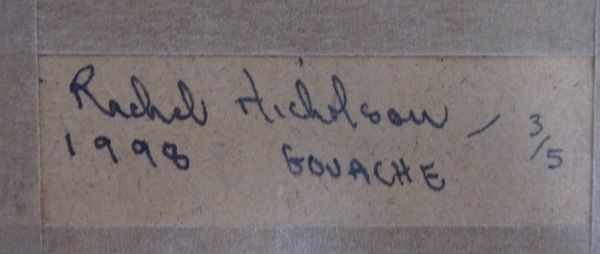 Rachel Nicholson / 3/5
1998 GOUACHE